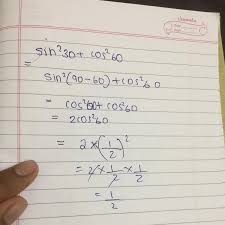 sin²30 + cos²60
=
sin²(90-60) + cos²60
= cos²60 + cos²60
= 2cos²60
= 2 × (1/2)²
= 2 × 1/2 × 1/2
= 1/2